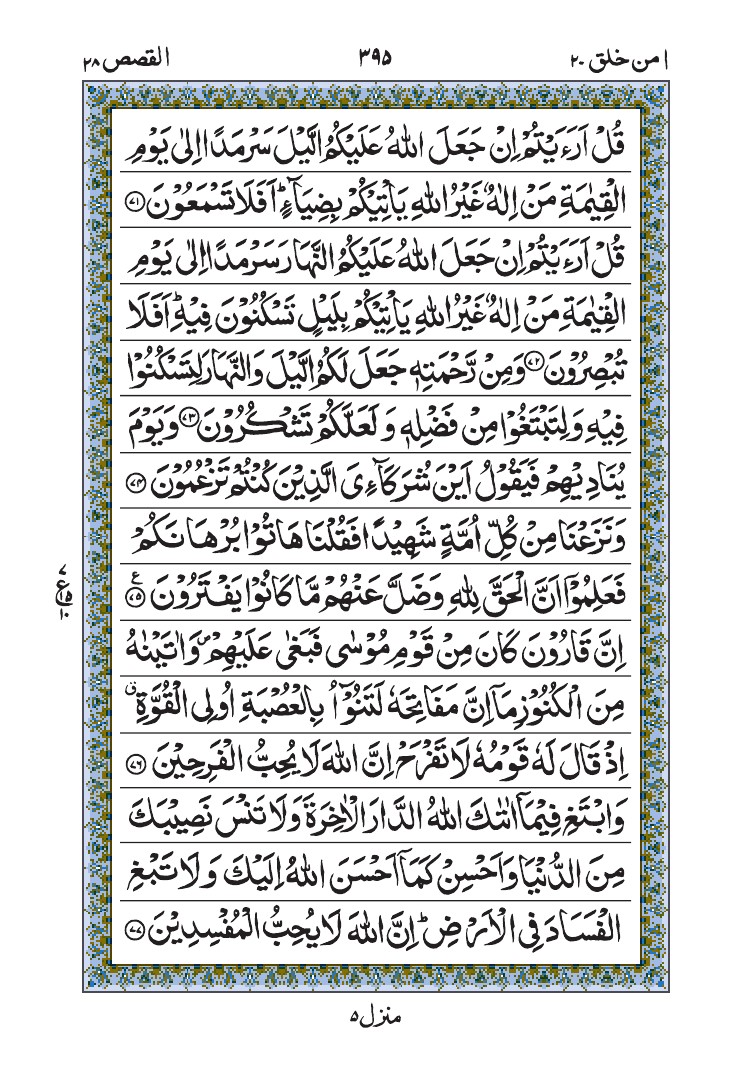 امن خلق ٢٠ ٣٩٥ القصص ٢٨
قُلْ اَرَءَيْتُمْ اِنْ جَعَلَ اللّٰهُ عَلَيْكُمُ الَّيْلَ سَرْمَدًا اِلٰى يَوْمِ
الْقِيٰمَةِ مَنْ اِلٰهٌ غَيْرُ اللّٰهِ يَاْتِيْكُمْ بِضِيَآءٍ ؕ اَفَلَا تَسْمَعُوْنَ ﴿٧١﴾
قُلْ اَرَءَيْتُمْ اِنْ جَعَلَ اللّٰهُ عَلَيْكُمُ النَّهَارَ سَرْمَدًا اِلٰى يَوْمِ
الْقِيٰمَةِ مَنْ اِلٰهٌ غَيْرُ اللّٰهِ يَاْتِيْكُمْ بِلَيْلٍ تَسْكُنُوْنَ فِيْهِ ؕ اَفَلَا
تُبْصِرُوْنَ ﴿٧٢﴾ وَمِنْ رَّحْمَتِهٖ جَعَلَ لَكُمُ الَّيْلَ وَالنَّهَارَ لِتَسْكُنُوْا
فِيْهِ وَلِتَبْتَغُوْا مِنْ فَضْلِهٖ وَلَعَلَّكُمْ تَشْكُرُوْنَ ﴿٧٣﴾ وَيَوْمَ
يُنَادِيْهِمْ فَيَقُوْلُ اَيْنَ شُرَكَآءِىَ الَّذِيْنَ كُنْتُمْ تَزْعُمُوْنَ ﴿٧٤﴾
وَنَزَعْنَا مِنْ كُلِّ اُمَّةٍ شَهِيْدًا فَقُلْنَا هَاتُوْا بُرْهَانَكُمْ
فَعَلِمُوْٓا اَنَّ الْحَقَّ لِلّٰهِ وَضَلَّ عَنْهُمْ مَّا كَانُوْا يَفْتَرُوْنَ ﴿٧٥﴾ ع
٧ ع ١٥ ١٠
اِنَّ قَارُوْنَ كَانَ مِنْ قَوْمِ مُوْسٰى فَبَغٰى عَلَيْهِمْ ۪ وَاٰتَيْنٰهُ
مِنَ الْكُنُوْزِ مَآ اِنَّ مَفَاتِحَهٗ لَتَنُوْٓاُ بِالْعُصْبَةِ اُولِى الْقُوَّةِ ۗ
اِذْ قَالَ لَهٗ قَوْمُهٗ لَا تَفْرَحْ اِنَّ اللّٰهَ لَا يُحِبُّ الْفَرِحِيْنَ ﴿٧٦﴾
وَابْتَغِ فِيْمَآ اٰتٰىكَ اللّٰهُ الدَّارَ الْاٰخِرَةَ وَلَا تَنْسَ نَصِيْبَكَ
مِنَ الدُّنْيَا وَاَحْسِنْ كَمَآ اَحْسَنَ اللّٰهُ اِلَيْكَ وَلَا تَبْغِ
الْفَسَادَ فِى الْاَرْضِ ؕ اِنَّ اللّٰهَ لَا يُحِبُّ الْمُفْسِدِيْنَ ﴿٧٧﴾
منزل ٥